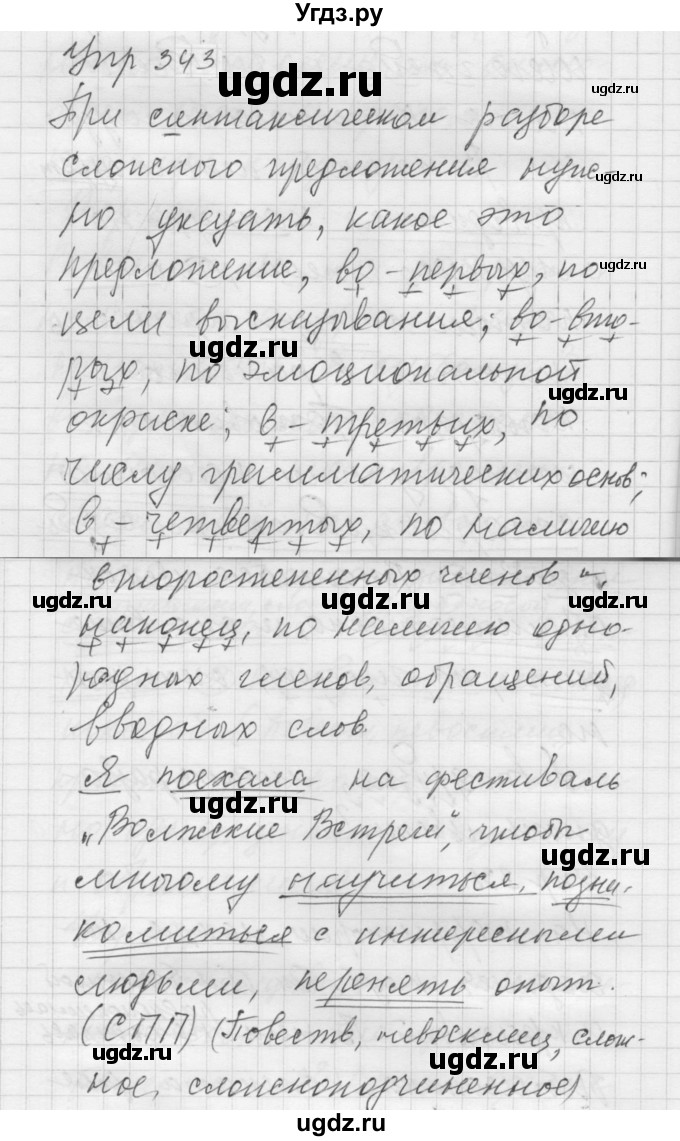 Угдз.ру
Упр 343
ugdz.ru
При синтаксическом разборе
ugdz.ru
сложного предложения нуж-
но указать, какое это
ugdz.ru
предложение, во-первых, по
цели высказывания; во-вто-
ugdz.ru
рых, по эмоциональной
окраске; в-третьих, по
числу грамматических основ;
в-четвертых, по наличию
второстепенных членов и,
ugdz.ru ugdz.ru ugdz.ru
наконец, по наличию одно-
родных членов, обращений,
вводных слов.
Я поехала на фестиваль
ugdz.ru
„Волжские Встречи", чтобы
ugdz.ru
многому научиться, позна-
комиться с интересными
людьми, перенять опыт.
(СПП) (Повеств, невосклиц, слож-
ugdz.ru
ное, сложноподчиненное)
ugdz.ru